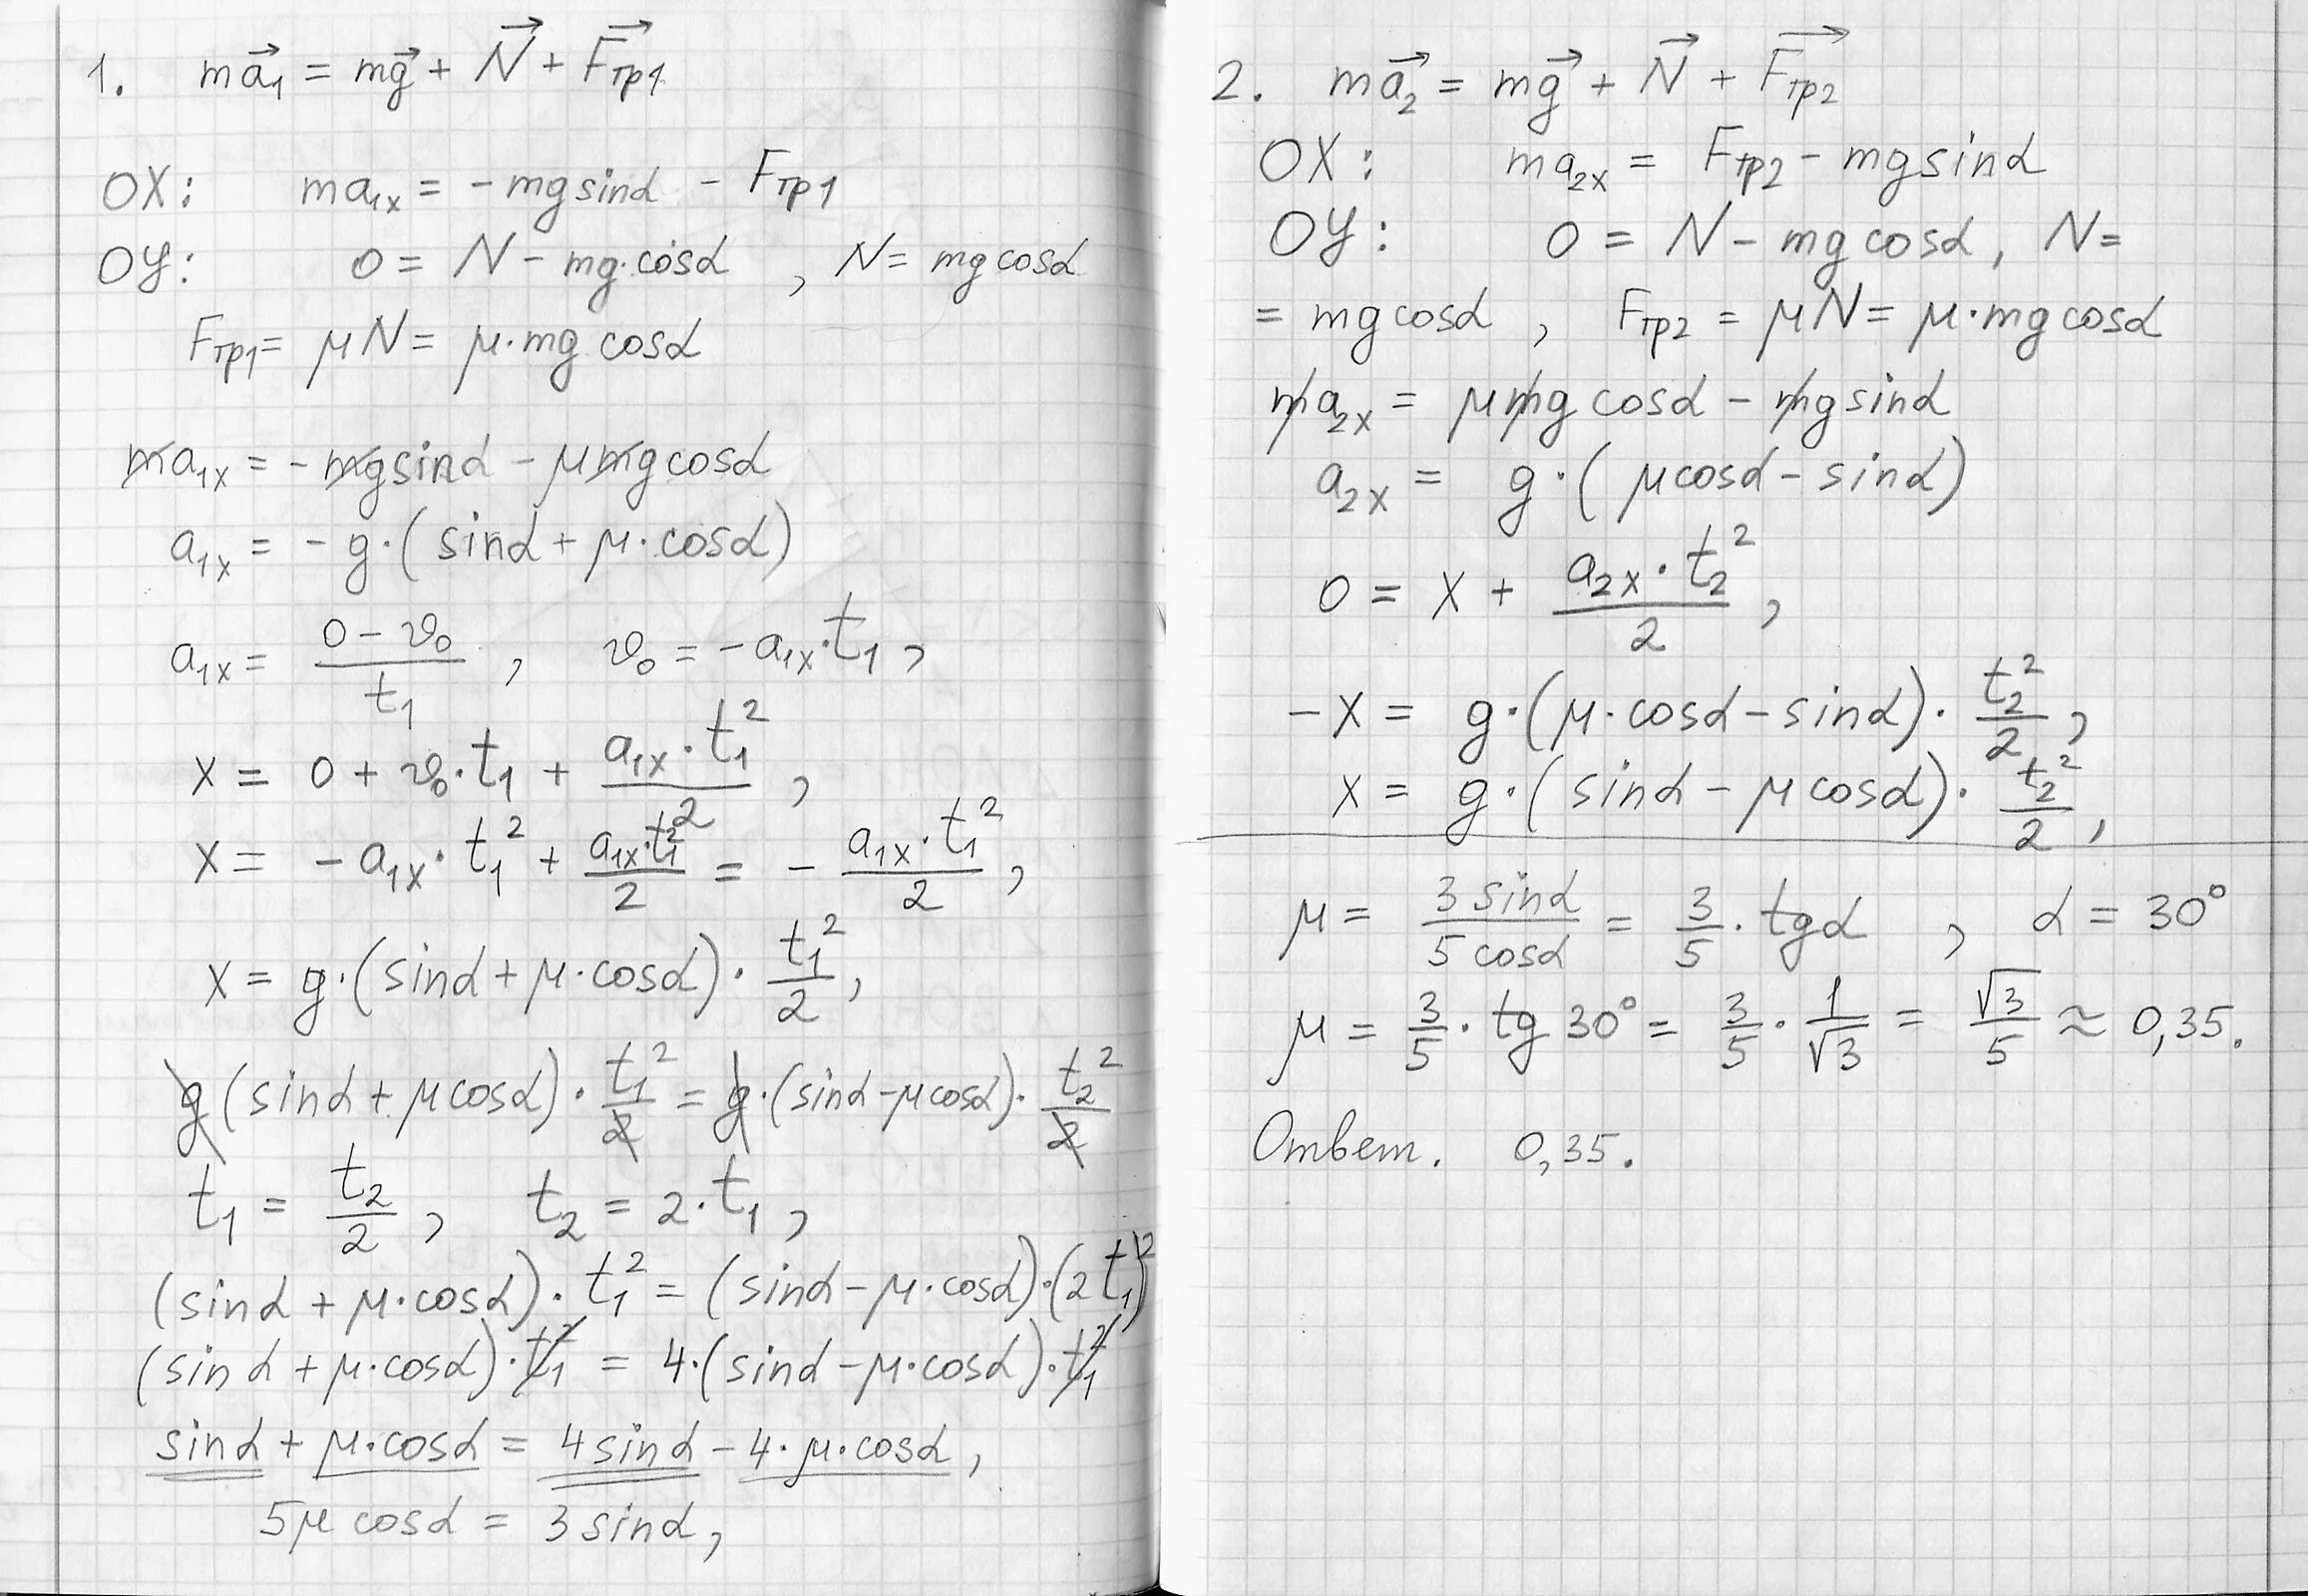 1. ma⃗₁ = mg⃗ + N⃗ + F⃗тр1
OX: ma₁ₓ = - mg sinα - Fтр1
OY: 0 = N - mg·cosα , N = mg cosα
Fтр1 = μN = μ·mg cosα
ma₁ₓ = - mg sinα - μmg cosα
a₁ₓ = - g·(sinα + μ·cosα)
a₁ₓ = (0 - v₀)/t₁ , v₀ = - a₁ₓ·t₁ ,
x = 0 + v₀·t₁ + (a₁ₓ·t₁²)/2 ,
x = - a₁ₓ·t₁² + (a₁ₓ·t₁²)/2 = - (a₁ₓ·t₁²)/2 ,
x = g·(sinα + μ·cosα)·t₁²/2 ,
g(sinα + μcosα)·t₁²/2 = g·(sinα - μcosα)·t₂²/2
t₁ = t₂/2 , t₂ = 2·t₁ ,
(sinα + μ·cosα)·t₁² = (sinα - μ·cosα)·(2t₁)²
(sinα + μ·cosα)·t₁² = 4·(sinα - μ·cosα)·t₁²
sinα + μ·cosα = 4sinα - 4·μ·cosα ,
5μ cosα = 3 sinα ,
2. ma⃗₂ = mg⃗ + N⃗ + F⃗тр2
OX: ma₂ₓ = Fтр2 - mg sinα
OY: 0 = N - mg cosα , N =
= mg cosα , Fтр2 = μN = μ·mg cosα
ma₂ₓ = μmg cosα - mg sinα
a₂ₓ = g·(μcosα - sinα)
0 = x + (a₂ₓ·t₂²)/2 ,
- x = g·(μ·cosα - sinα)·t₂²/2 ,
x = g·(sinα - μcosα)·t₂²/2 ,
μ = 3 sinα/5 cosα = 3/5·tgα , α = 30°
μ = 3/5·tg 30° = 3/5·1/√3 = √3/5 ≈ 0,35.
Ответ. 0,35.